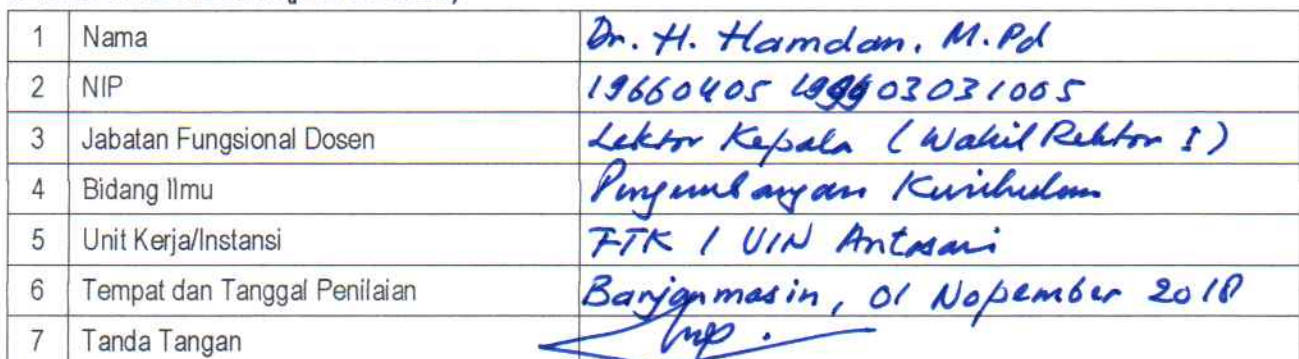 1 Nama Dr. H. Hamdan, M.Pd
2 NIP 19660405 199403031005
3 Jabatan Fungsional Dosen Lektor Kepala (Wakil Rektor I)
4 Bidang Ilmu Pengembangan Kurikulum
5 Unit Kerja/Instansi FTK / UIN Antasari
6 Tempat dan Tanggal Penilaian Banjarmasin, 01 Nopember 2018
7 Tanda Tangan